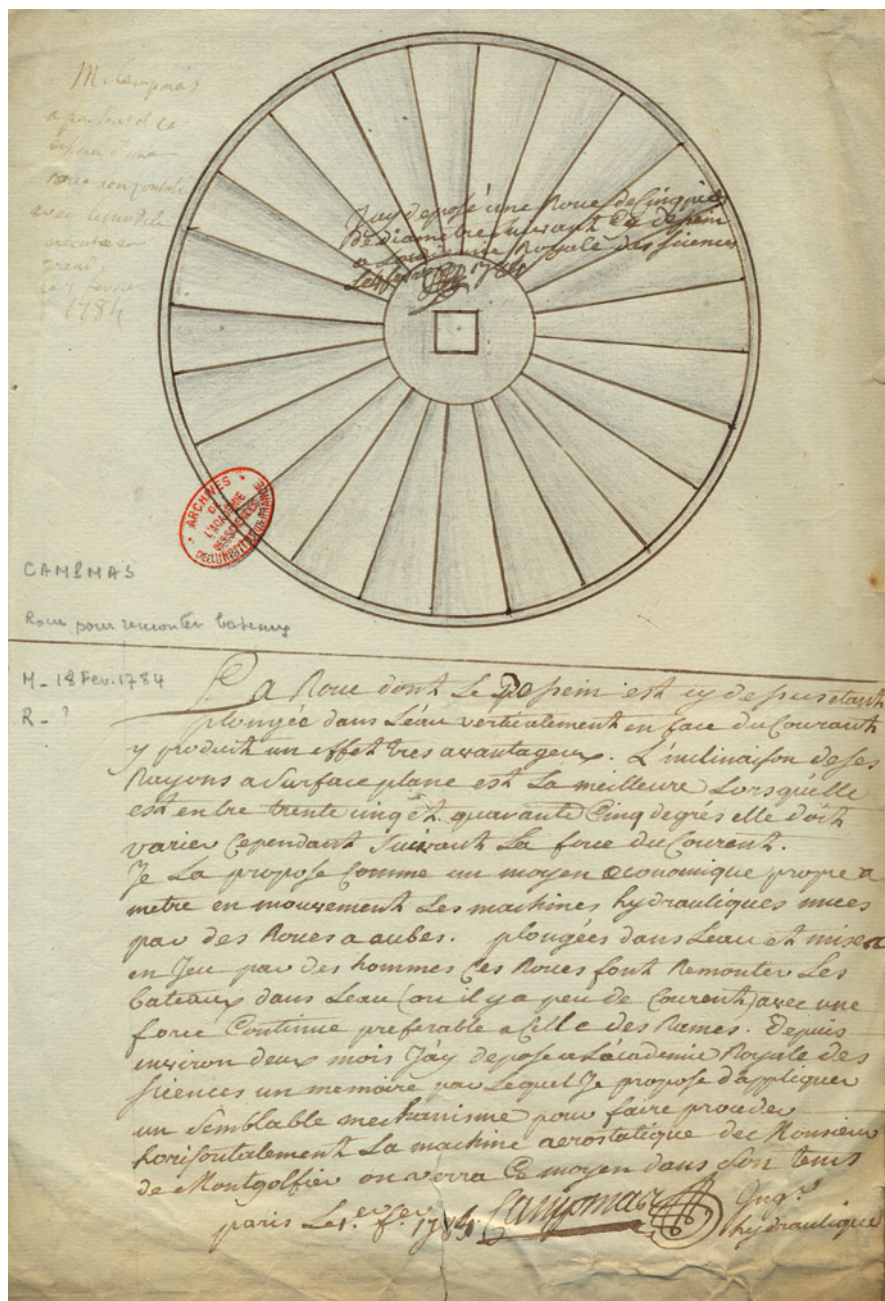 M. Campmas
a présenté ce
d'une
roue horizontale
avec le modele
executé en
grand,
le 7 fevrier
1784
Jay deposé une Roue de Cinq pieds
de diametre suivant Ce dessein
a Lacademie Royale des Siences
Le fevrier 1784
ARCHIVES
DE
L'ACADÉMIE
DES SCIENCES
DE L'INSTITUT DE FRANCE
CAMPMAS
Roue pour remonter bateaux
M- 18 Fev. 1784
R- ?
La Roue dont Le Dessein est cy dessus etant
plongée dans Léau verticalement en face du Courant
y produit un effet tres avantageux. L'inclinaison de ses
Rayons a Surface plane est La meilleure Lorsqu'elle
est entre trente cinq et quarante Cinq degrés elle doit
varier Cependant Suivant La force du Courent.
Je La propose Comme un moyen œconomique propre a
metre en mouvement Les machines hydrauliques mues
par des Roues a aubes. plongées dans Leau et mises
en Jeu par des hommes Ces Roues font Remonter Les
bateaux dans Leau (ou il y a peu de Courent) avec une
force Continue preferable a Celle des Rames. Depuis
environ deux mois J'ay deposé a Lácademie Royale des
siences un memoire par Lequel Je propose d'appliquer
un Semblable mechanisme pour faire proceder
horisontalement La machine aerostatique de Monsieur
de Montgolfier on verra Ce moyen dans Son tems
paris Le 1.er f.er 1784. Campmas Ing.r
hydraulique